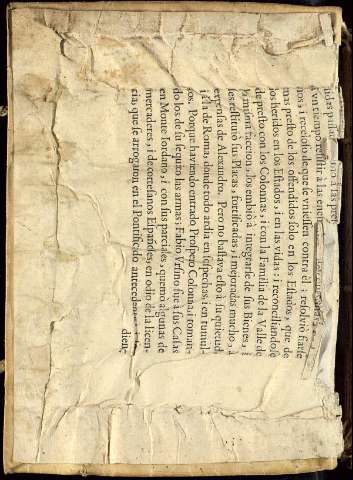 a un tiempo resistir à las
nos; i recelofo de que fe vnieffen contra èl; refolviò fiarfe
mas prefto de los offendidos folo en los Eftados, que de
los heridos en los Eftados, i en las vidas: i reconciliandofe
de prefto con los Colonnas, i con la Familia de la Valle de
la mifma faccion, los embiò à integrarfe de fus Bienes, i
les reftituiò fus Plaças, fortificadas, i mejoradas mucho, à
expenfas de Alexandro. Pero no baftava efto à fu quietud,
i à la de Roma; donde todo ardia en fofpechas; i en tumul-
tos. Porque haviendo entrado Profpero Colonna, i toman-
do los de fu fequito las armas; Fabio Vrfino fue à fus Cafas
en Monte Iordano, i con fus parciales, quemò algunas de
mercaderes, i de cortefanos Efpañoles, en odio de la licen-
cia, que fe arrogaron en el Pontificado antecedente
dien-